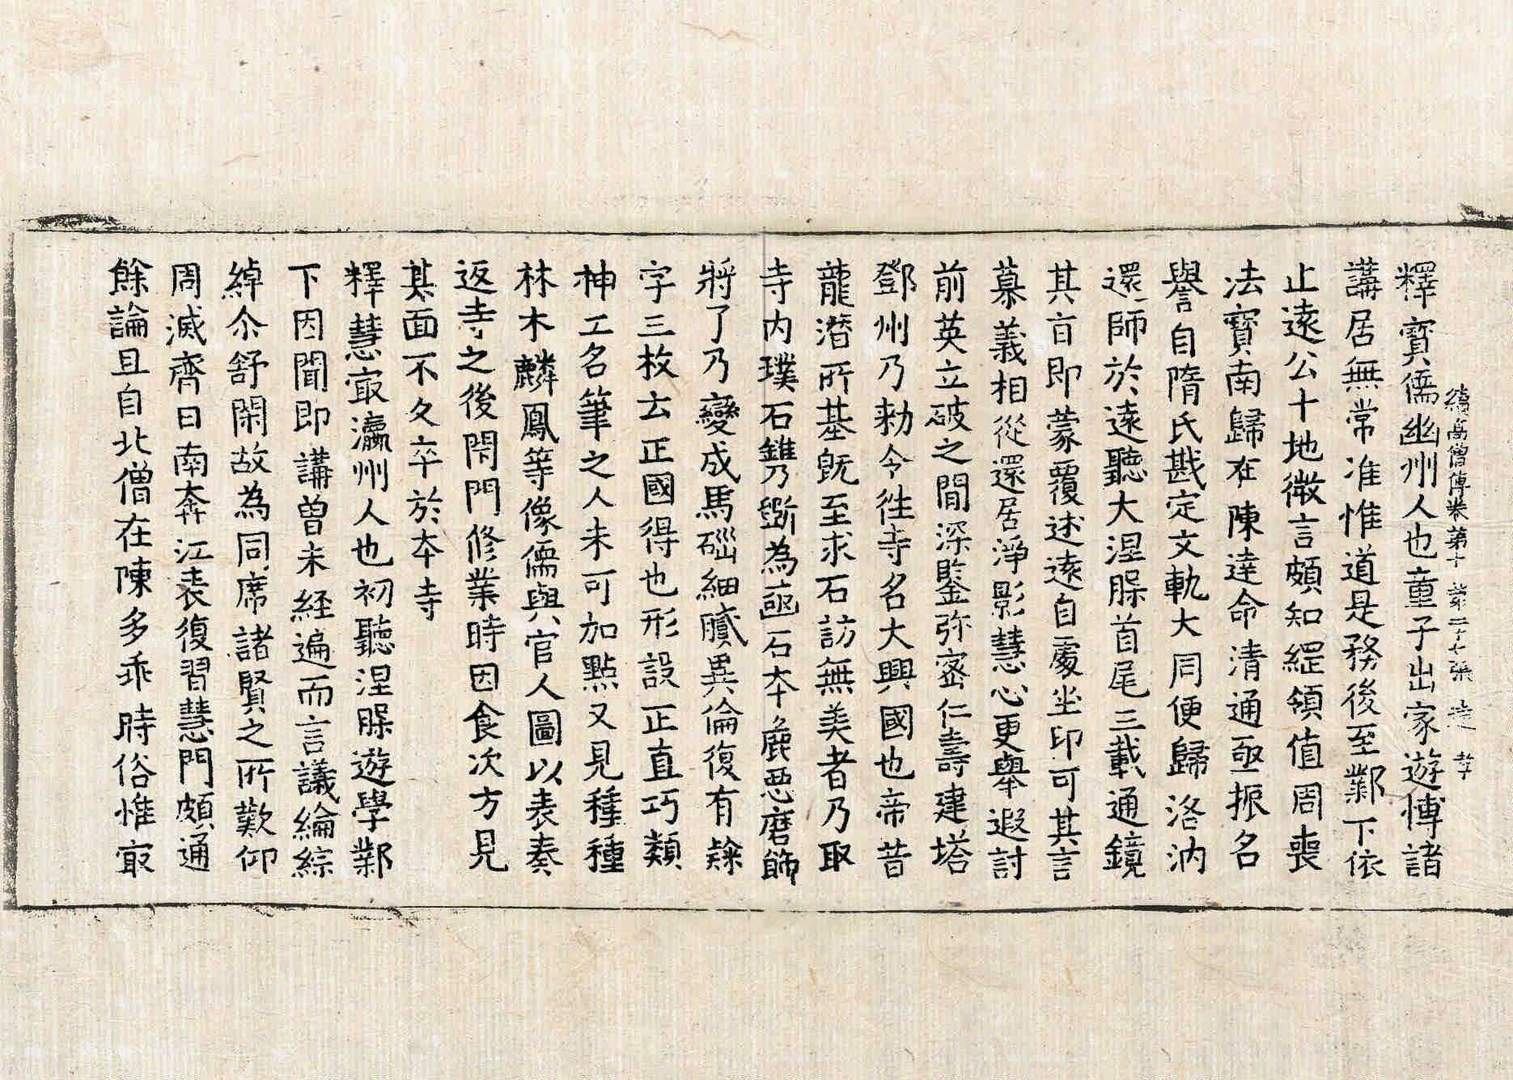 續高僧傳卷第十 第二十七張 達
釋寶儒幽州人也童子出家遊博諸
講居無常准惟道是務後至鄴下依
止遠公十地微言頗知綱領值周喪
法寶南歸在陳達命清通亟振名
譽自隋氏戡定文軌大同便歸洛汭
還師於遠聽大涅槃首尾三載通鏡
其㫖即蒙覆述遠自處坐印可其言
慕義相從還居淨影慧心更舉遐討
前英立破之間深鍳弥密仁壽建塔
鄧州乃勑令往寺名大興國也帝昔
龍潛所基既至求石訪無美者乃取
寺内璞石鐫斲為函石本麁惡磨飾
將了乃變成馬碯細膩異倫復有隸
字三枚云正國得也形設正直巧類
神工名筆之人未可加點又見種種
林木麟鳳等像儒與官人圖以表奏
返寺之後閇門修業時因食次方見
其面不久卒於本寺
釋慧㝡瀛州人也初聽涅槃遊學鄴
下因聞即講曽未經遍而言議綸綜
綽尒舒閑故為同席諸賢之所歎仰
周滅齊日南奔江表復習慧門頗通
餘論且自北僧在陳多乖時俗惟㝡